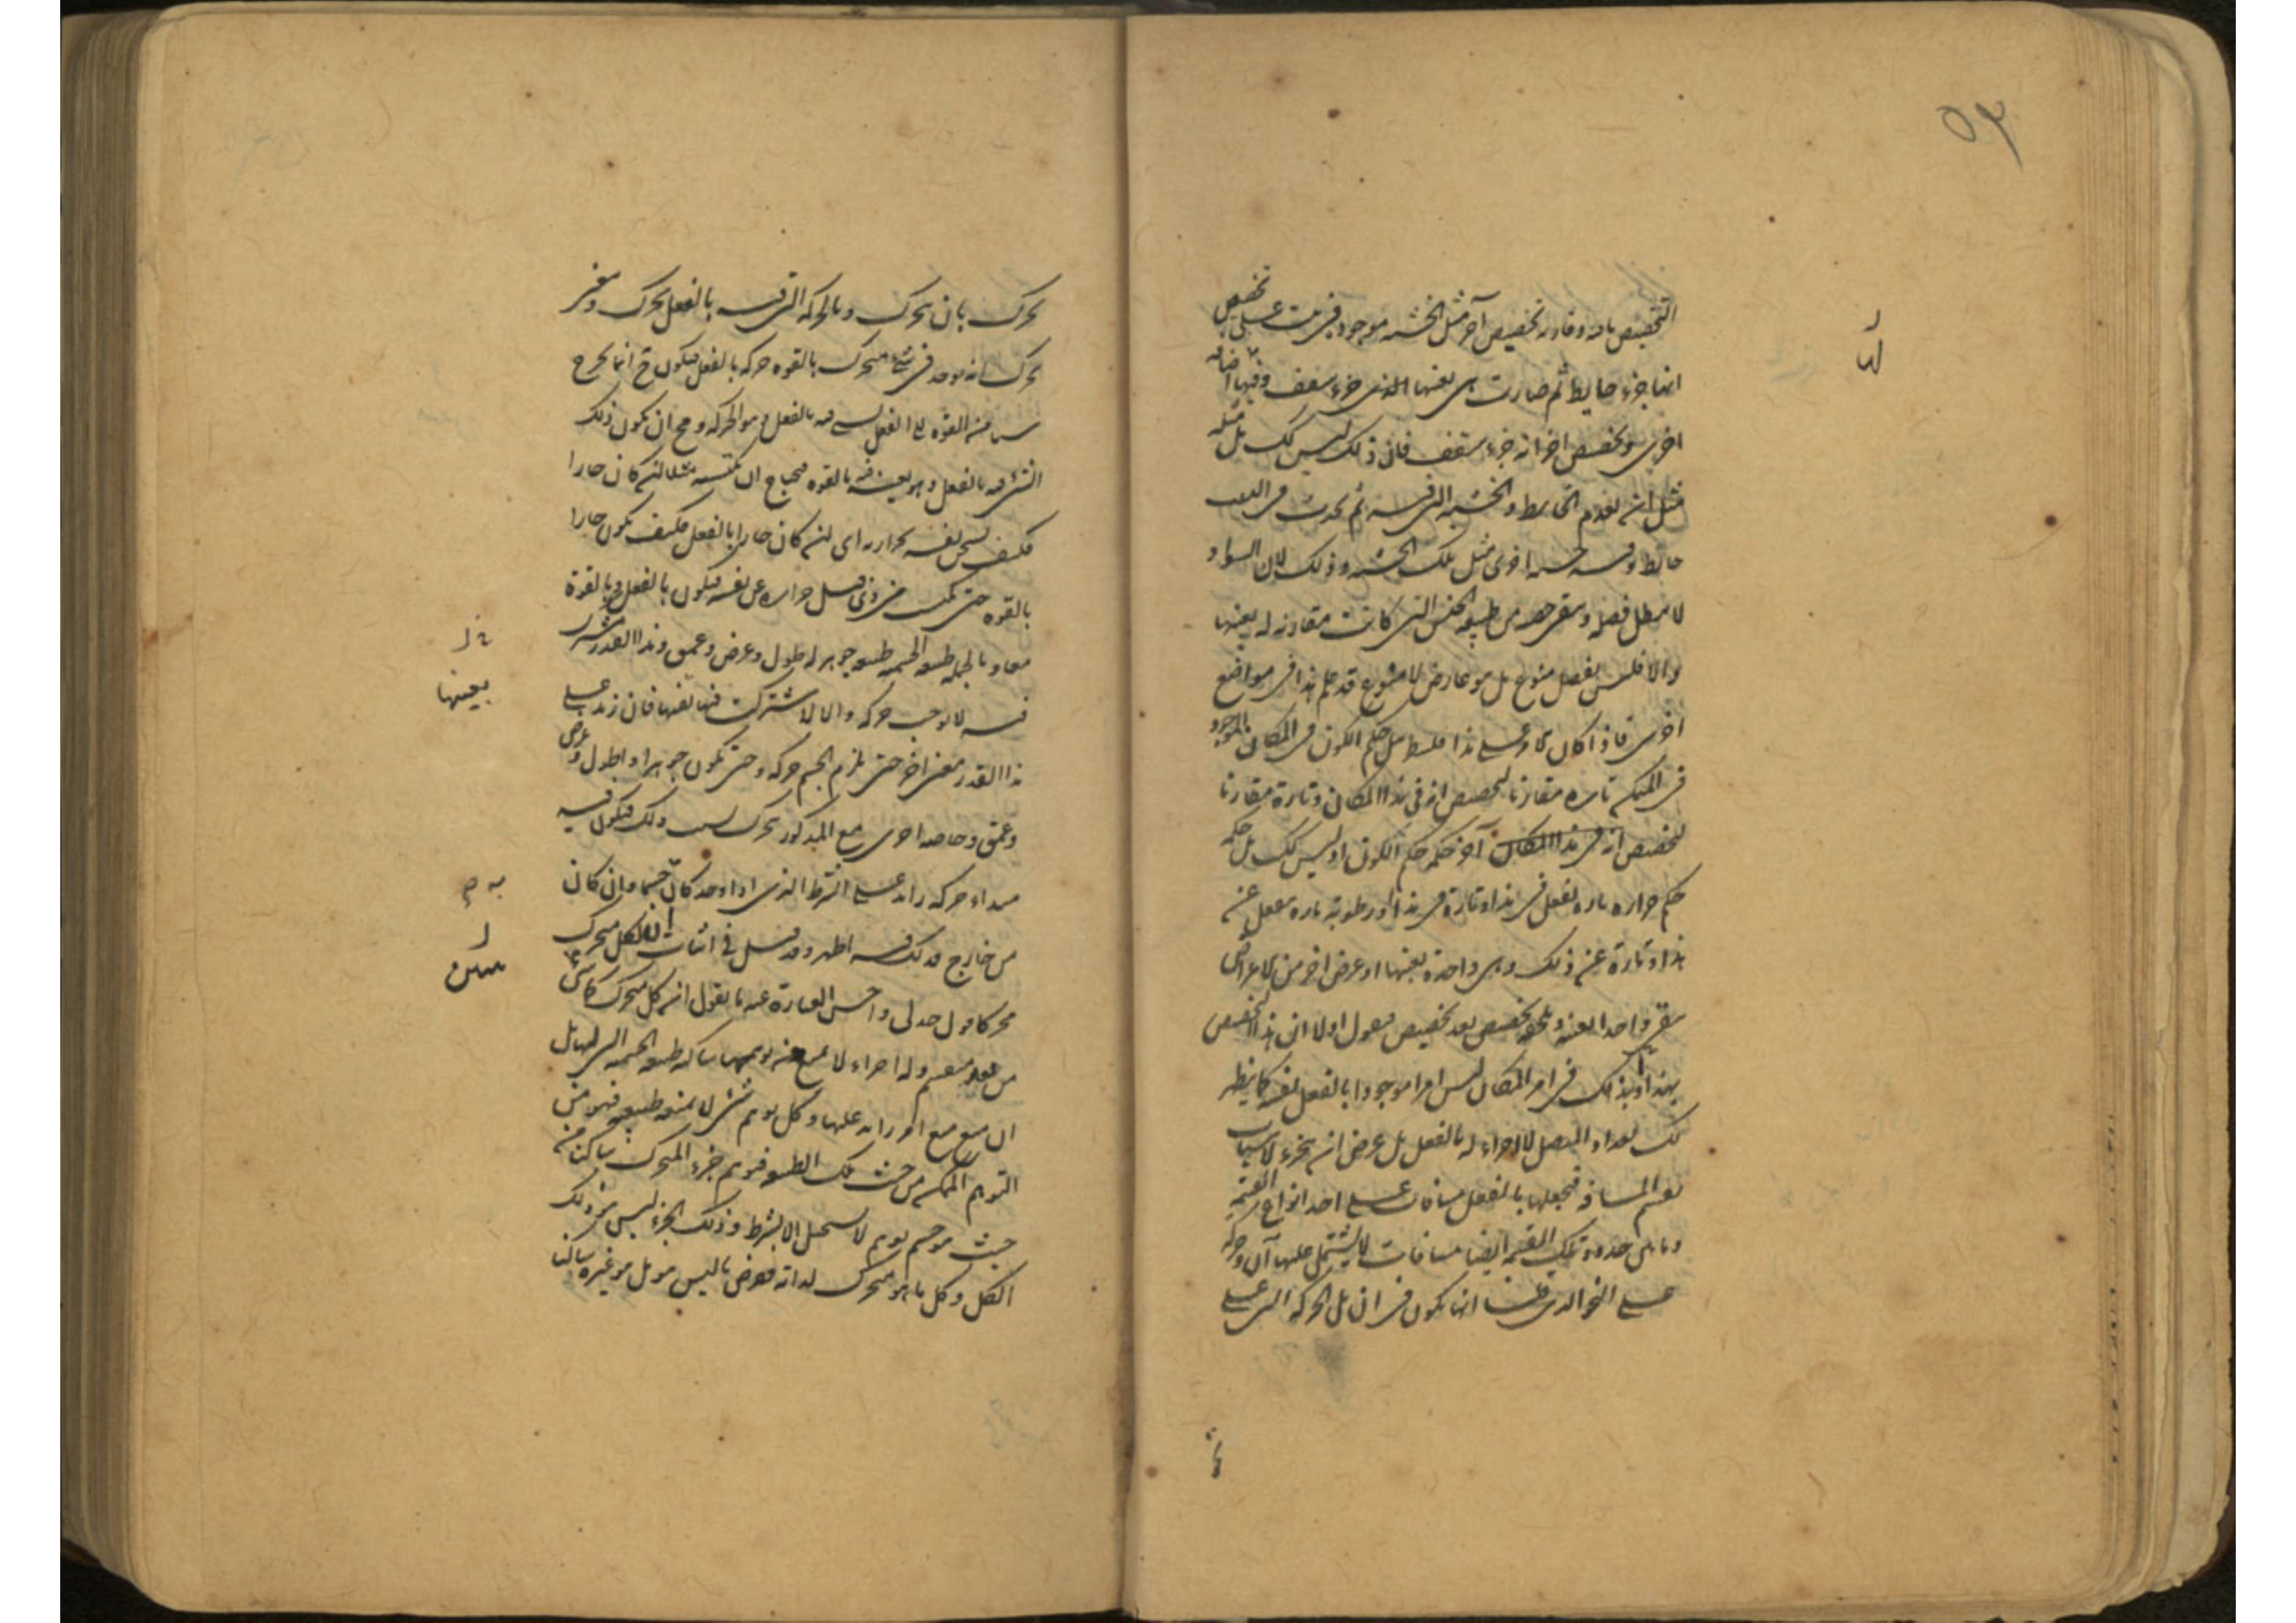 ٥٣
التخصيص باده وقارنه تخصيص آخر مثل الخشبه موجود فى بيت على تخصيص
انها جزء حايط ثم صارت هى بعينها الذى جزء سقف وفيها اضافه
اخرى وتخصيص اخر انه جزء سقف فان ذلك ليس كك بل مثله
مثل ان يعدم الحايط والخشبه التى فيه ثم يحدث فى البيت
حائط وفيه خشبه اخرى مثل تلك الخشبه وذلك لان السواد
لا يبطل فصله ويبقى حصه من طبيعه الجنس التى كانت مقارنه له بعينها
والا فليس بفصل منوع بل هو عارض لا منوع قد علم هذا فى مواضع
اخرى فاذا كان الامر على هذا فلينظر هل حكم الكون فى المكان الموجود
فى المتمكن تاره مقارنا لتخصيص انه فى هذا المكان وتارة مقارنا
لتخصيص انه فى هذا المكان آخر حكمه حكم الكون او ليس كك بل حكمه
حكم حراره تاره تفعل فى هذا وتارة فى هذا او رطوبة تاره تنفعل عن
هذا وتارة عن ذلك وهى واحدة بعينها او عرض اخر من الاعراض
يبقى واحدا بعينه ويلحقه تخصيص بعد تخصيص فنقول اولا ان هذا التخصيص
بهذا او بذلك فى امر المكان ليس امرا موجودا بالفعل نفسه كما يظهر
لك بعد اذ المتصل لا اجزاء له بالفعل بل عرض ان يتجزء لاسباب
تقسم المسافة فتجعلها بالفعل مسافات على احد انواع القسمة
وما بين حدود تلك القسمه ايضا مسافات لا يشتمل عليها آن وحركه
على النحو الذى قلنا انها تكون فى ان بل الحركه التى على
تحرك بان يحرك وبالحركه التى فيه بالفعل يحرك ومعنى
يحرك انه يوجد فى شئ متحرك بالقوه حركه بالفعل فيكون ح انما يخرج
شيئا من القوه الى الفعل بشئ فيه بالفعل وهو الحركه ومح ان يكون ذلك
الشئ فيه بالفعل وهو بعينه فيه بالقوه فيحتاج ان يكتسبه مثلا ان كان حارا
فكيف يسخن نفسه بحرارته اى ان كان حارا بالفعل فكيف يكون حارا
بالقوه حتى يكتسب من ذى قبل حراره عن نفسه فيكون بالفعل وبالقوة
معا وبالجمله طبيعه الجسميه طبيعه جوهر له طول وعرض وعمق وهذا القدر مشترك
فيه لا يوجب حركه والا لاشتركت فيها بعينها فان زيد على
هذا القدر معنى اخر حتى يلزم الجسم حركه وحتى يكون جوهرا ذا طول وعرض
وعمق وخاصه اخرى مع المذكور يحرك بسبب ذلك فيكون فيه
مبداء حركه زايد على الشرط الذى اذا وجد كان جسما وان كان
من خارج فذلك فيه اظهر وقد قيل فى اثبات ان لكل متحرك
محركا قول جدلى واحسن العبارة عنه ما نقول ان كل متحرك كما تبين
من بعد منقسم وله اجزاء لا يمنع عن توهمها ساكنه طبيعه الجسميه التى لها بل
ان منع منع امر زايد عليها وكل توهم شئ لا يمنعه طبيعه فهو من
التوهم الممكن من حيث تلك الطبيعه فتوهم جزء المتحرك ساكنا من
حيث هو جسم توهم لا يستحيل الا بشرط وذلك الجزء ليس هو ذلك
الكل وكل ما هو متحرك لذاته ففرض ما ليس هو بل هو غيره ساكنا
بعينها